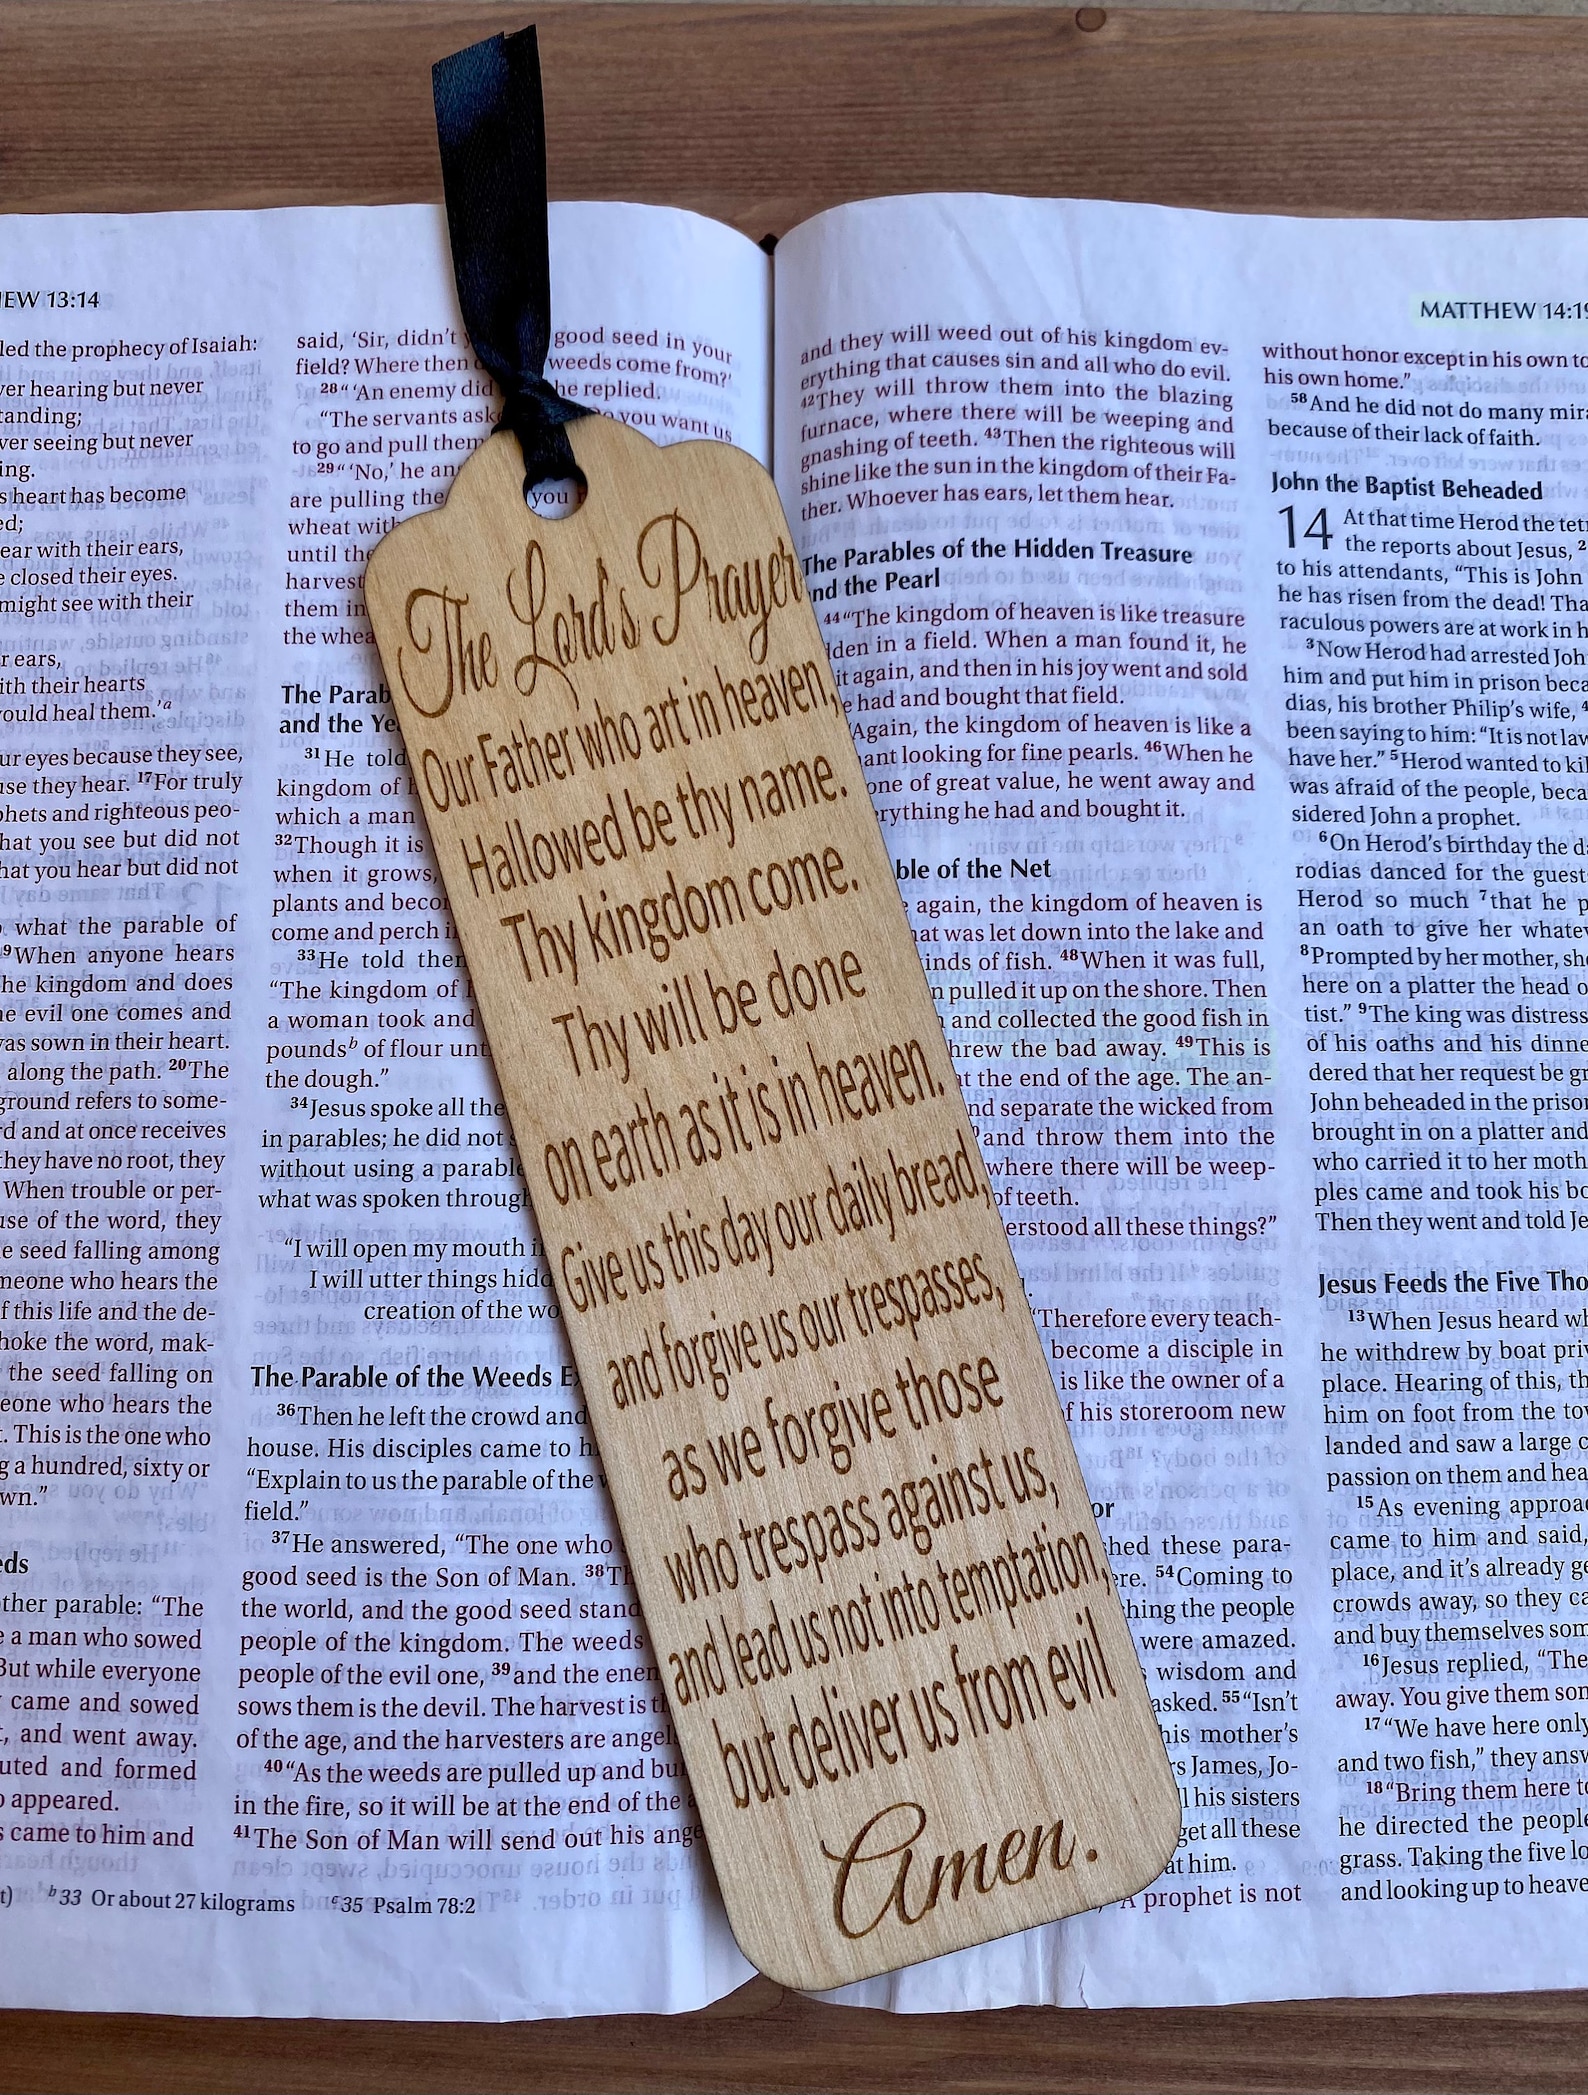 EW 13:14
led the prophecy of Isaiah:
ver hearing but never
tanding;
ver seeing but never
ing.
s heart has become
ed;
ear with their ears,
e closed their eyes.
might see with their
r ears,
ith their hearts
ould heal them.'a
ur eyes because they see,
use they hear. 17For truly
phets and righteous peo-
hat you see but did not
hat you hear but did not
what the parable of
9When anyone hears
he kingdom and does
e evil one comes and
as sown in their heart.
along the path. 20The
ground refers to some-
rd and at once receives
they have no root, they
When trouble or per-
use of the word, they
e seed falling among
meone who hears the
f this life and the de-
hoke the word, mak-
the seed falling on
eone who hears the
. This is the one who
g a hundred, sixty or
wn."
eds
ther parable: "The
e a man who sowed
But while everyone
came and sowed
, and went away.
uted and formed
appeared.
s came to him and
said, 'Sir, didn't good seed in your
field? Where then weeds come from?'
28"'An enemy did he replied.
"The servants ask you want us
to go and pull them
29"'No,' he an
are pulling the you
wheat with
until the
harvest
them in
the whea
The Parab
and the Ye
31He told
kingdom of h
which a man
32Though it is
when it grows,
plants and beco
come and perch i
33He told then
"The kingdom of
a woman took and
poundsb of flour unt
the dough."
34Jesus spoke all the
in parables; he did not
without using a parable
what was spoken through
"I will open my mouth i
I will utter things hidd
creation of the wo
The Parable of the Weeds E
36Then he left the crowd and
house. His disciples came to h
"Explain to us the parable of the
field."
37He answered, "The one who
good seed is the Son of Man. 38Th
the world, and the good seed stand
people of the kingdom. The weeds
people of the evil one, 39and the ener
sows them is the devil. The harvest is th
of the age, and the harvesters are angel
40"As the weeds are pulled up and bu
in the fire, so it will be at the end of the
41The Son of Man will send out his ange
t) b33 Or about 27 kilograms c35 Psalm 78:2
The Lord's Prayer
Our Father who art in heaven,
Hallowed be thy name.
Thy kingdom come.
Thy will be done
on earth as it is in heaven.
Give us this day our daily bread,
and forgive us our trespasses,
as we forgive those
who trespass against us,
and lead us not into temptation,
but deliver us from evil
Amen.
and they will weed out of his kingdom ev-
erything that causes sin and all who do evil.
42They will throw them into the blazing
furnace, where there will be weeping and
gnashing of teeth. 43Then the righteous will
shine like the sun in the kingdom of their Fa-
ther. Whoever has ears, let them hear.
The Parables of the Hidden Treasure
nd the Pearl
44"The kingdom of heaven is like treasure
dden in a field. When a man found it, he
it again, and then in his joy went and sold
e had and bought that field.
Again, the kingdom of heaven is like a
ant looking for fine pearls. 46When he
one of great value, he went away and
erything he had and bought it.
ble of the Net
again, the kingdom of heaven is
hat was let down into the lake and
inds of fish. 48When it was full,
n pulled it up on the shore. Then
and collected the good fish in
hrew the bad away. 49This is
at the end of the age. The an-
nd separate the wicked from
and throw them into the
where there will be weep-
of teeth.
erstood all these things?"
"Therefore every teach-
become a disciple in
is like the owner of a
f his storeroom new
or
shed these para-
ere. 54Coming to
hing the people
were amazed.
wisdom and
asked. 55"Isn't
his mother's
s James, Jo-
l his sisters
get all these
at him.
A prophet is not
MATTHEW 14:19
without honor except in his own to
his own home."
58And he did not do many mira
because of their lack of faith.
John the Baptist Beheaded
14 At that time Herod the tetr
the reports about Jesus, 2
to his attendants, "This is John
he has risen from the dead! Tha
raculous powers are at work in h
3Now Herod had arrested Joh
him and put him in prison beca
dias, his brother Philip's wife, 4
been saying to him: "It is not law
have her." 5Herod wanted to kil
was afraid of the people, beca
sidered John a prophet.
6On Herod's birthday the d
rodias danced for the guest
Herod so much 7that he p
an oath to give her whatev
8Prompted by her mother, she
here on a platter the head o
tist." 9The king was distress
of his oaths and his dinne
dered that her request be gr
John beheaded in the prison
brought in on a platter and
who carried it to her moth
ples came and took his bo
Then they went and told Je
Jesus Feeds the Five Tho
13When Jesus heard wh
he withdrew by boat priv
place. Hearing of this, th
him on foot from the tow
landed and saw a large c
passion on them and hea
15As evening approa
came to him and said,
place, and it's already ge
crowds away, so they ca
and buy themselves som
16Jesus replied, "The
away. You give them som
17"We have here only
and two fish," they answ
18"Bring them here to
he directed the people
grass. Taking the five lo
and looking up to heave